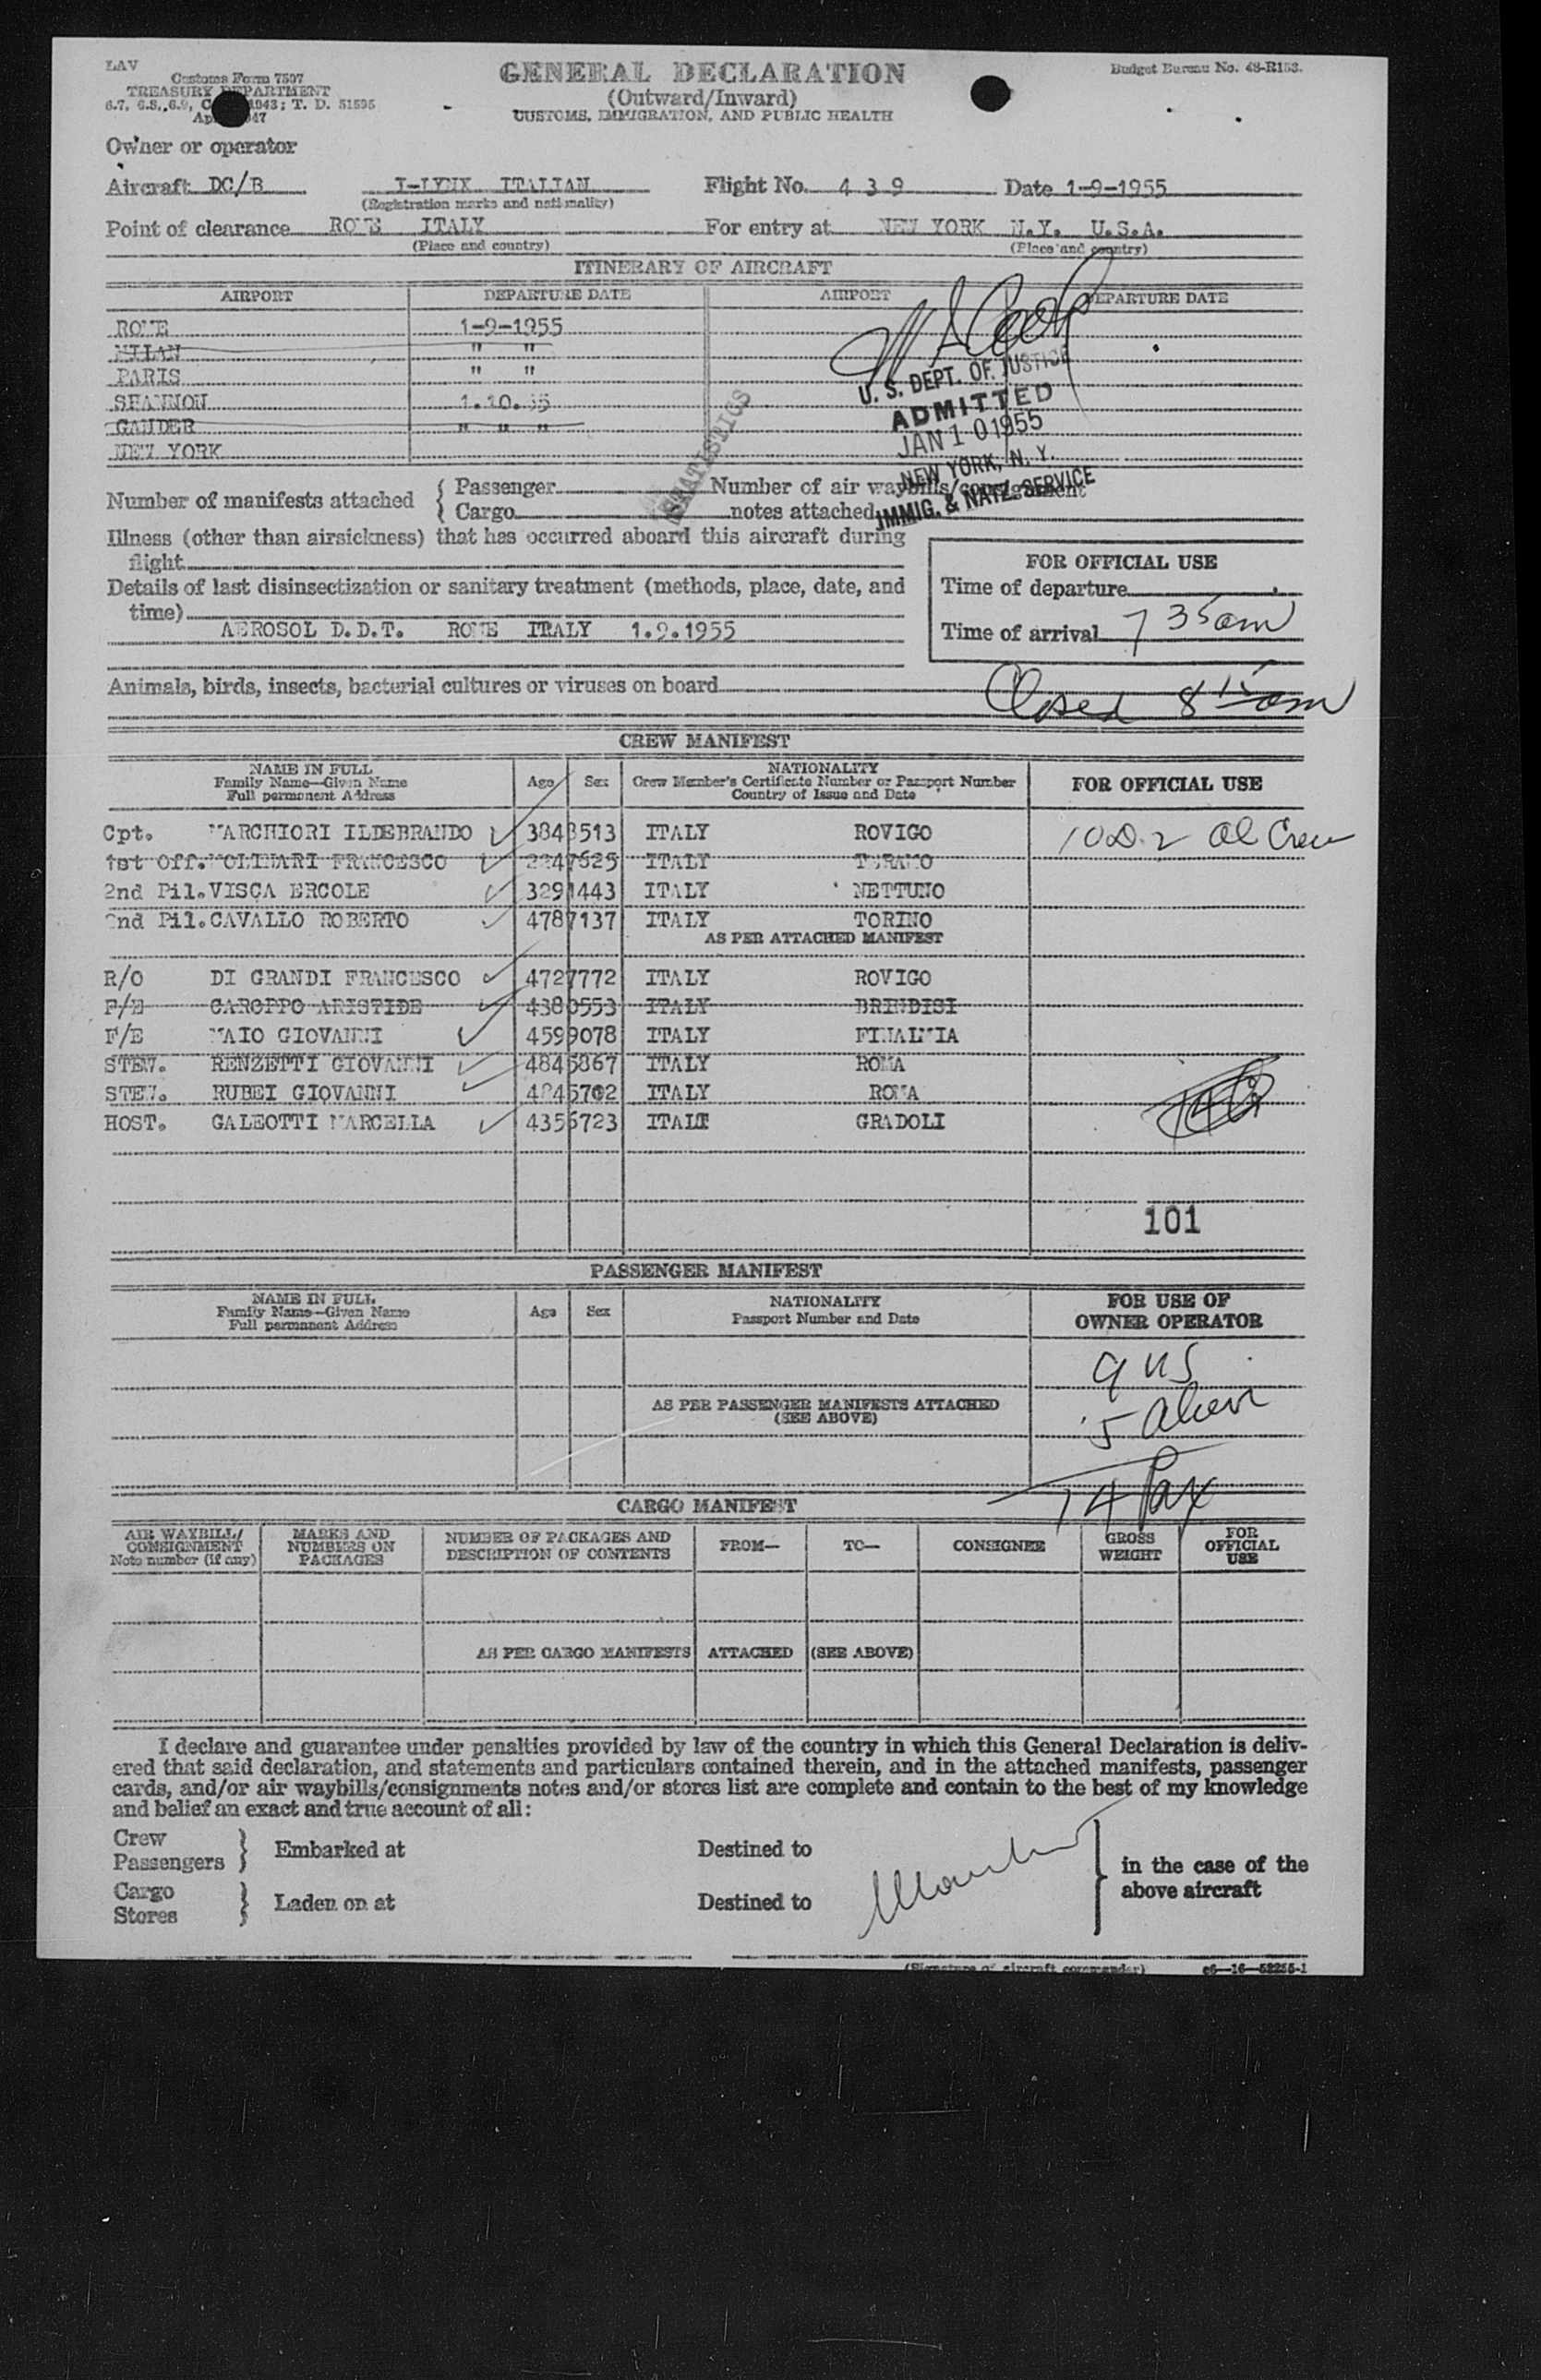 LAV
Customs Form 7507
TREASURY DEPARTMENT
6.7, 6.8, 6.9, 1943; T. D. 51595
47
GENERAL DECLARATION
(Outward/Inward)
CUSTOMS, IMMIGRATION, AND PUBLIC HEALTH
Budget Bureau No. 48-R153.
Owner or operator
Aircraft DC/B I-LYNX ITALIAN Flight No. 439 Date 1-9-1955
(Registration marks and nationality)
Point of clearance ROME ITALY For entry at NEW YORK N.Y. U.S.A.
(Place and country) (Place and country)
ITINERARY OF AIRCRAFT
AIRPORT DEPARTURE DATE AIRPORT DEPARTURE DATE
ROME 1-9-1955
MILAN " "
PARIS " "
SHANNON 1.10.55
GANDER " " "
NEW YORK
U. S. DEPT. OF JUSTICE
ADMITTED
JAN 10 1955
NEW YORK, N. Y.
IMMIG. & NATZ. SERVICE
STATISTICS
Number of manifests attached { Passenger Number of air waybills/consignment
Cargo notes attached
Illness (other than airsickness) that has occurred aboard this aircraft during
flight
Details of last disinsectization or sanitary treatment (methods, place, date, and
time)
AEROSOL D.D.T. ROME ITALY 1.9.1955
FOR OFFICIAL USE
Time of departure
Time of arrival 7 35 am
Animals, birds, insects, bacterial cultures or viruses on board
Closed 8 15 am
CREW MANIFEST
NAME IN FULL
Family Name—Given Name
Full permanent Address
Age Sex
NATIONALITY
Crew Member's Certificate Number or Passport Number
Country of Issue and Date
FOR OFFICIAL USE
Cpt. MARCHIORI ILDEBRANDO 3848513 ITALY ROVIGO
1st Off. MOLINARI FRANCESCO 7625 ITALY
2nd Pil. VISCA ERCOLE 3291443 ITALY NETTUNO
2nd Pil. CAVALLO ROBERTO 4787137 ITALY TORINO
AS PER ATTACHED MANIFEST
R/O DI GRANDI FRANCESCO 4727772 ITALY ROVIGO
F/E CAROPPO ARISTIDE 4380553 ITALY BRINDISI
F/E MAIO GIOVANNI 4599078 ITALY FINALMIA
STEW. RENZETTI GIOVANNI 4845867 ITALY ROMA
STEW. RUBEI GIOVANNI 4845702 ITALY ROMA
HOST. GALEOTTI MARCELLA 4356723 ITALT GRADOLI
Crew
101
PASSENGER MANIFEST
NAME IN FULL
Family Name—Given Name
Full permanent Address
Age Sex
NATIONALITY
Passport Number and Date
FOR USE OF
OWNER OPERATOR
9 US
5 alien
14 Pax
AS PER PASSENGER MANIFESTS ATTACHED
(SEE ABOVE)
CARGO MANIFEST
AIR WAYBILL/
CONSIGNMENT
Note number (if any)
MARKS AND
NUMBERS ON
PACKAGES
NUMBER OF PACKAGES AND
DESCRIPTION OF CONTENTS
FROM—
TO—
CONSIGNEE
GROSS
WEIGHT
FOR
OFFICIAL
USE
AS PER CARGO MANIFESTS ATTACHED (SEE ABOVE)
I declare and guarantee under penalties provided by law of the country in which this General Declaration is deliv-
ered that said declaration, and statements and particulars contained therein, and in the attached manifests, passenger
cards, and/or air waybills/consignments notes and/or stores list are complete and contain to the best of my knowledge
and belief an exact and true account of all:
Crew
Passengers } Embarked at Destined to
Cargo
Stores } Laden on at Destined to
in the case of the
above aircraft
(Signature of aircraft commander) c6—16—52255-1